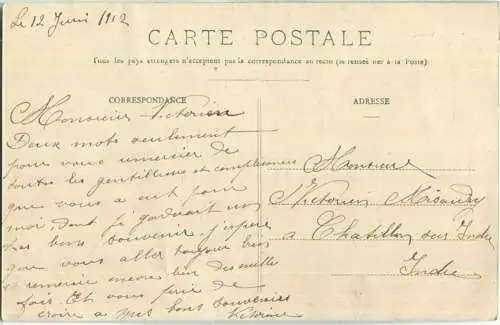 Le 12 Juin 1912
CARTE POSTALE
Tous les pays étrangers n'acceptent pas la correspondance au recto (se renseigner à la Poste)
CORRESPONDANCE
Monsieur Victorien
Deux mots seulement
pour vous
toutes les gentilesses et
que vous a eut pour
moi, dont je garderait un
bon souvenir. J'espère
que vous allez toujour bien
et remercie encore bien des mille
fois. Et vous prie de
croire a mes bons souvenirs
ADRESSE
Monsieur
Victorien
a Chatillon sur Indre
Indre